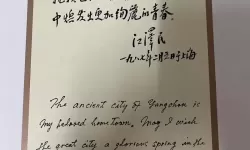 中焕发出更加绚丽的青春.
江泽民
一九八七年二月五日于上海
The ancient city of Yangzhou is
my beloved hometown. May I wish
the great city a glorious spring in the